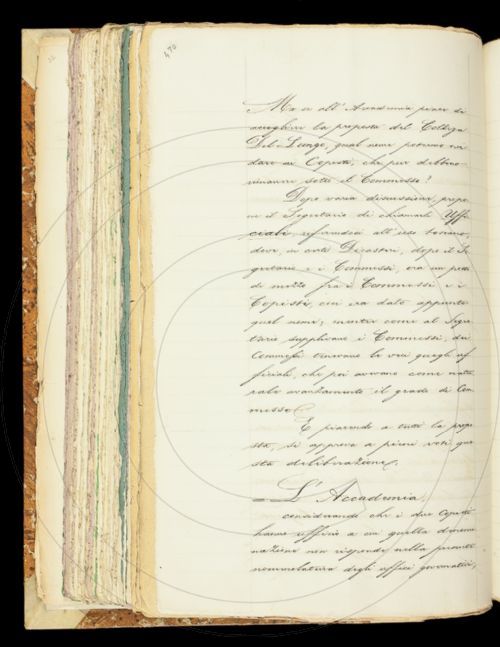 470
Ma se all' Accademia piace di
accogliere la proposta del Collega
Del-Lungo, qual nome potremo noi
dare ai Copisti, che pur debbono
rimanere sotto il Commesso?
Dopo varia discussione, propo-
ne il Segretario di chiamarli Uffi-
ciali, rifacendosi all' uso toscano,
dove, in certi Dicasteri, dopo il Se-
gretario e i Commessi, era un posto
di mezzo fra i Commessi e i
Copisti, cui era dato appunto
quel nome; mentre come al Segre-
tario supplivano i Commessi, dei
Commessi tenevano le veci quegli uf-
ficiali, che poi avevano come natu-
rale avanzamento il grado di Com-
messo.
E piacendo a tutti la propo-
sta, si approva a pieni voti que-
sta deliberazione.
L' Accademia,
considerando che i due Copisti
hanno uffici a cui quella denomi-
nazione non risponde nella presente
nomenclatura degli uffici governativi,